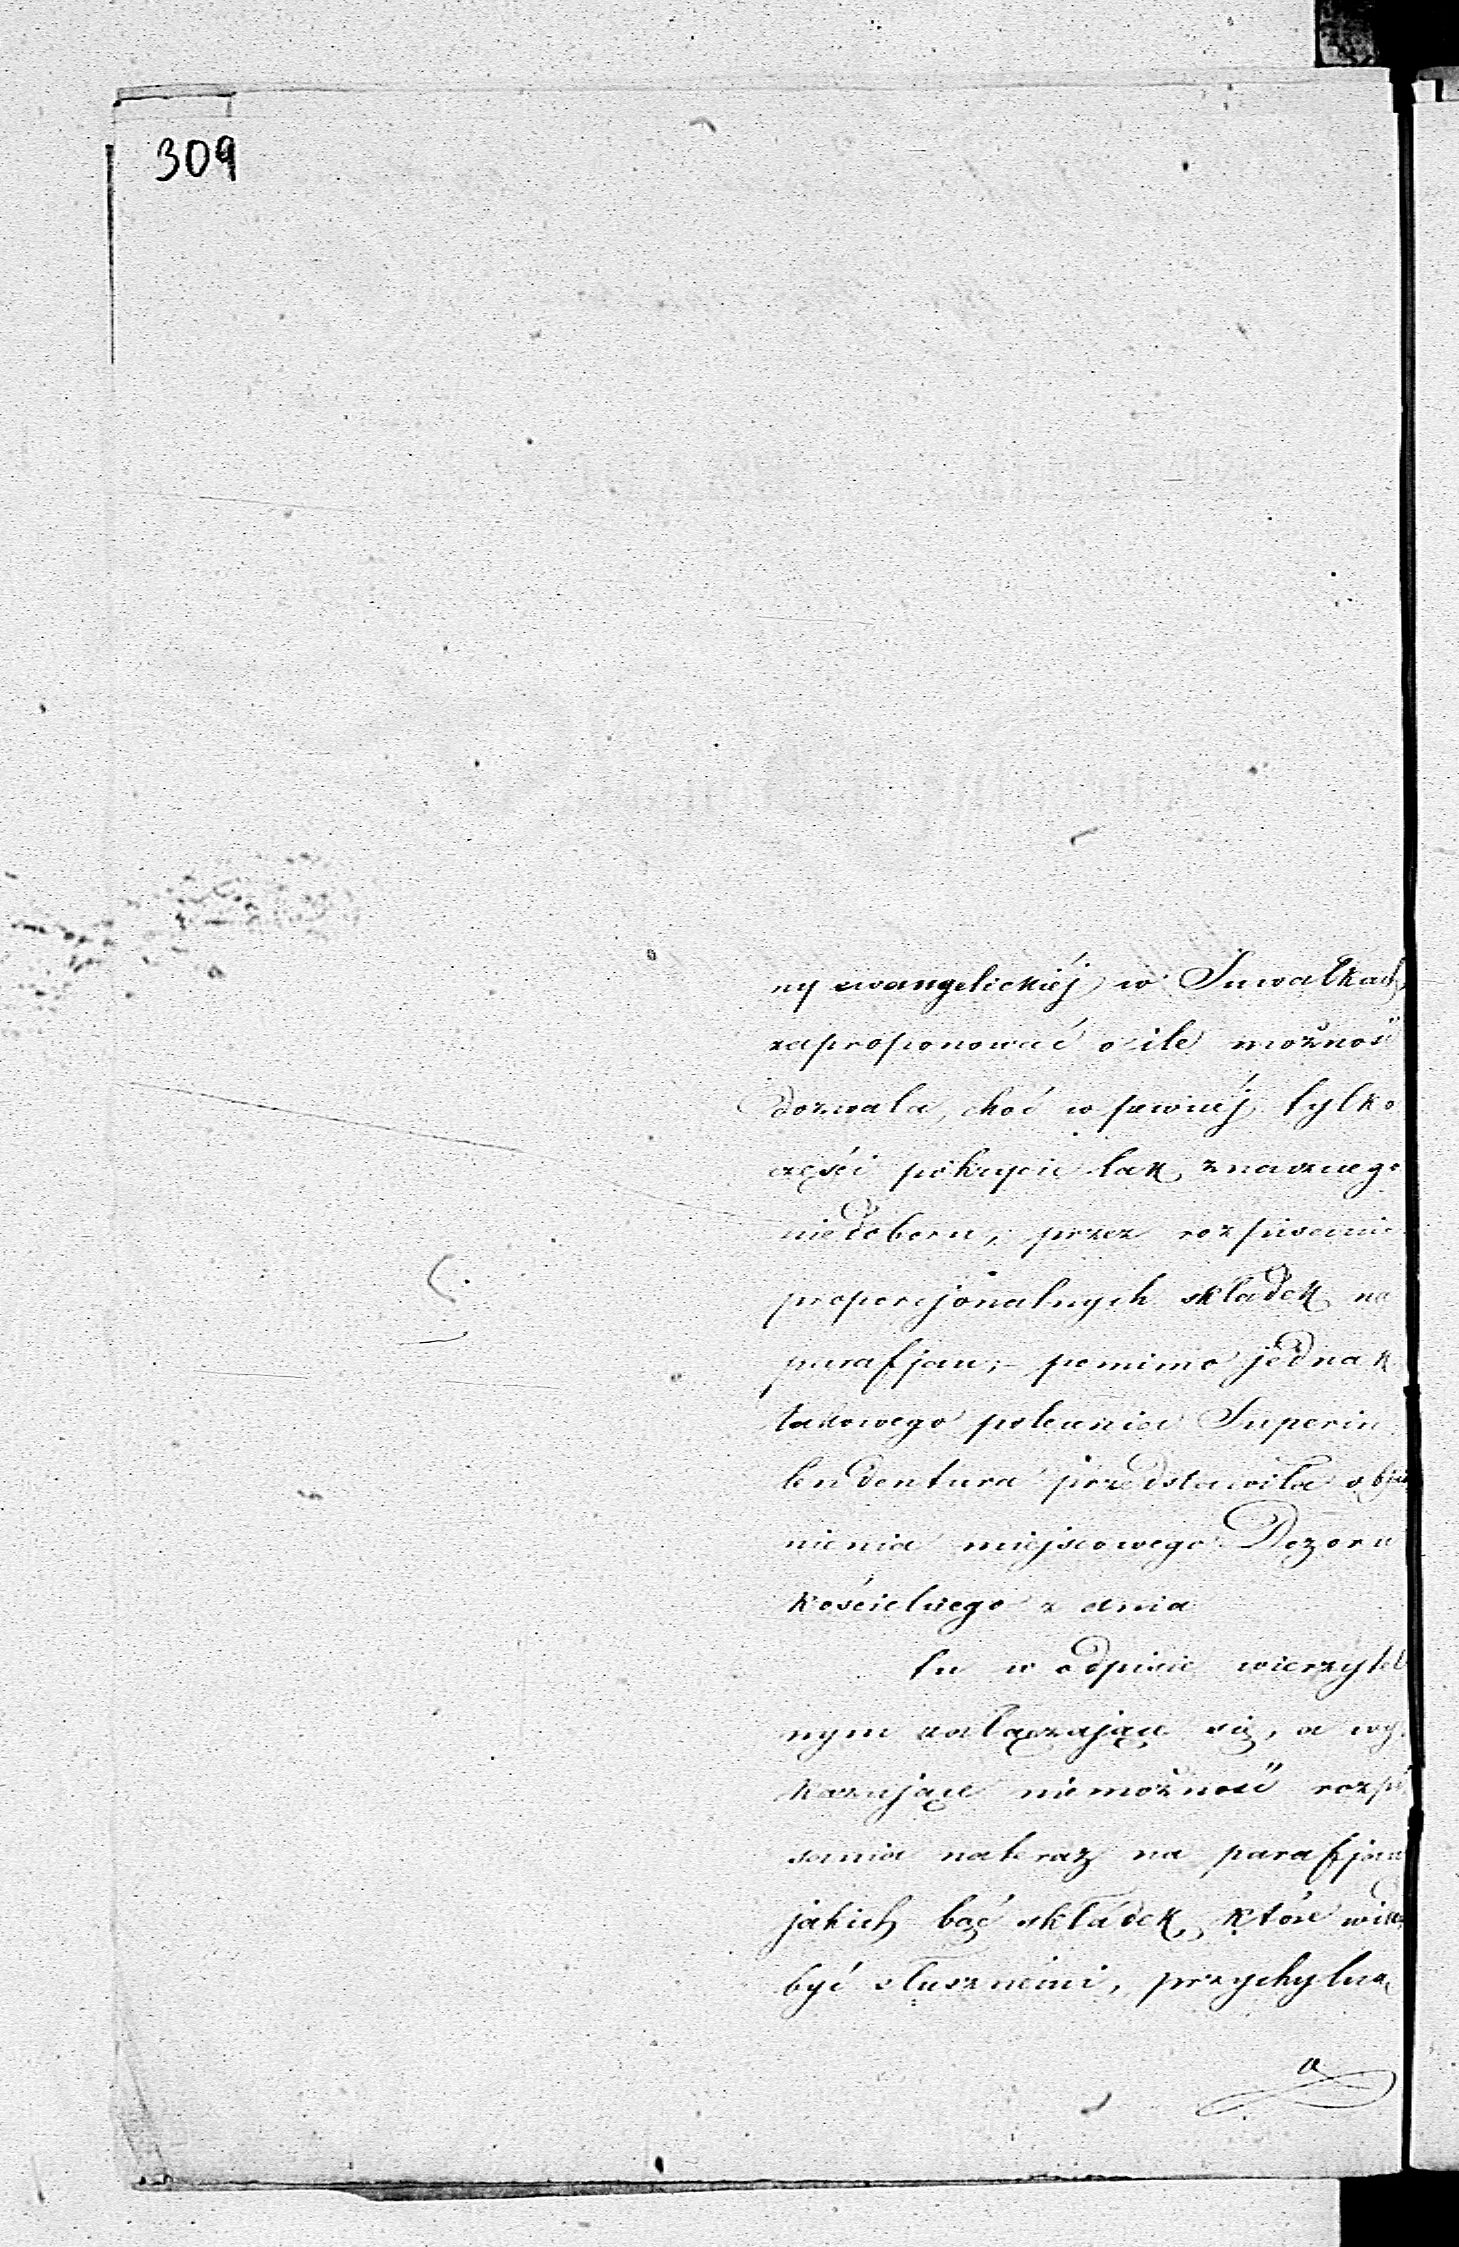 309
ny ewangelickiéj w Suwałkach
zaproponować o ile możność
dozwala, choć w pewnéj tylko
części pokrycie tak znacznego
niedoboru, przez rozpisanie
proporcjonalnych składek na
parafjan; pomimo jednak
takowego polecenia Superin
tendentura przedstawiła objaś
nienia miejscowego Dozoru
kościelnego z dnia
tu w odpisie wierzytel
nym załączające się, a wy
kazujące niemożność rozpi
sania nateraz na parafjan
jakich bąć składek, które
być słusznemi, przychylna
a